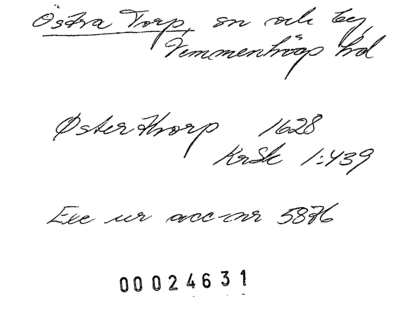 Östra Torp, sn och by,
Vemmenhögs hd
Østerthorp 1628
KrSk 1:439
Exc ur acc-nr 5876
00024631